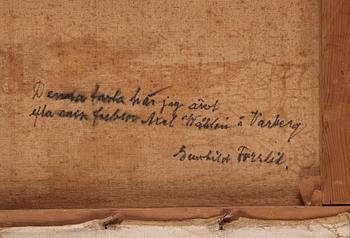 Denna tavla har jag ärvt
efter min farbror Axel Wåhlin i Varberg
Gunhild